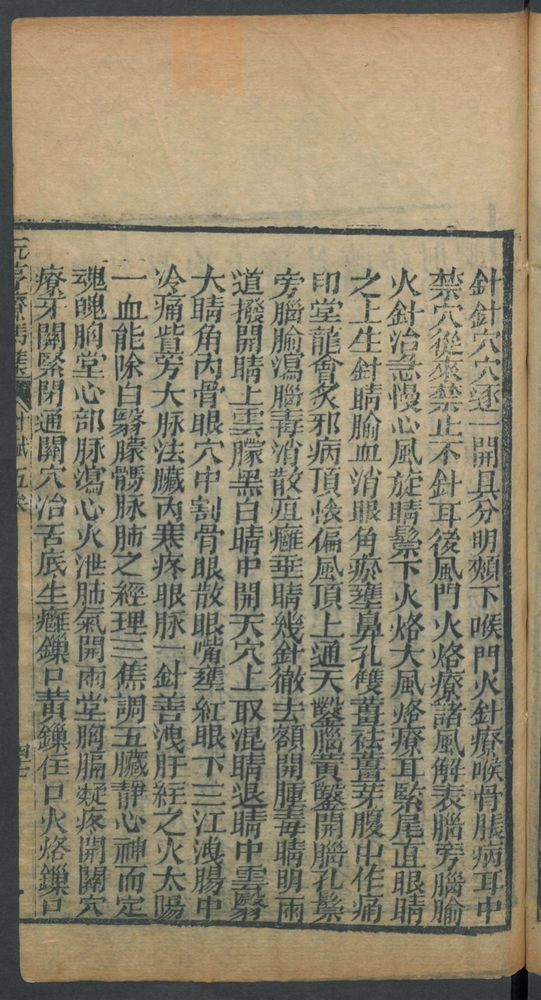 針針穴穴逐一開具分明頰下喉門火針療喉骨脹病耳中
禁穴從來禁止不針耳後風門火烙療諸風解表腦旁腦腧
火針治急慢心風旋睛鬃下火烙大風烙療耳緊尾直眼睛
之上生針睛腧血消眼角瘀壅鼻孔雙薑祛薑芽腹中作痛
印堂龍會炙邪病頂悷偏風頂上通天鑿腦黃鑿開腦孔鬃
旁腦腧瀉腦毒消散疽癰垂睛幾針徹去額開腫毒睛明兩
道撥開睛上雲朦黑白睛中開天穴上取混睛退睛中雲翳
大睛角內骨眼穴中割骨眼散眼嘴壅紅眼下三江洩腸中
冷痛眥旁大脉法臟內寒疼眼脉一針善洩肝經之火太陽
一血能除白翳朦鶻脉肺之經理三焦調五臟靜心神而定
魂魄胸堂心部脉瀉心火泄肺氣開兩堂胸膈凝疼開關穴
療牙關緊閉通關穴治舌底生癰鎖口黃鎖住口火烙鎖口
元亨療馬集 針賦 五 四十